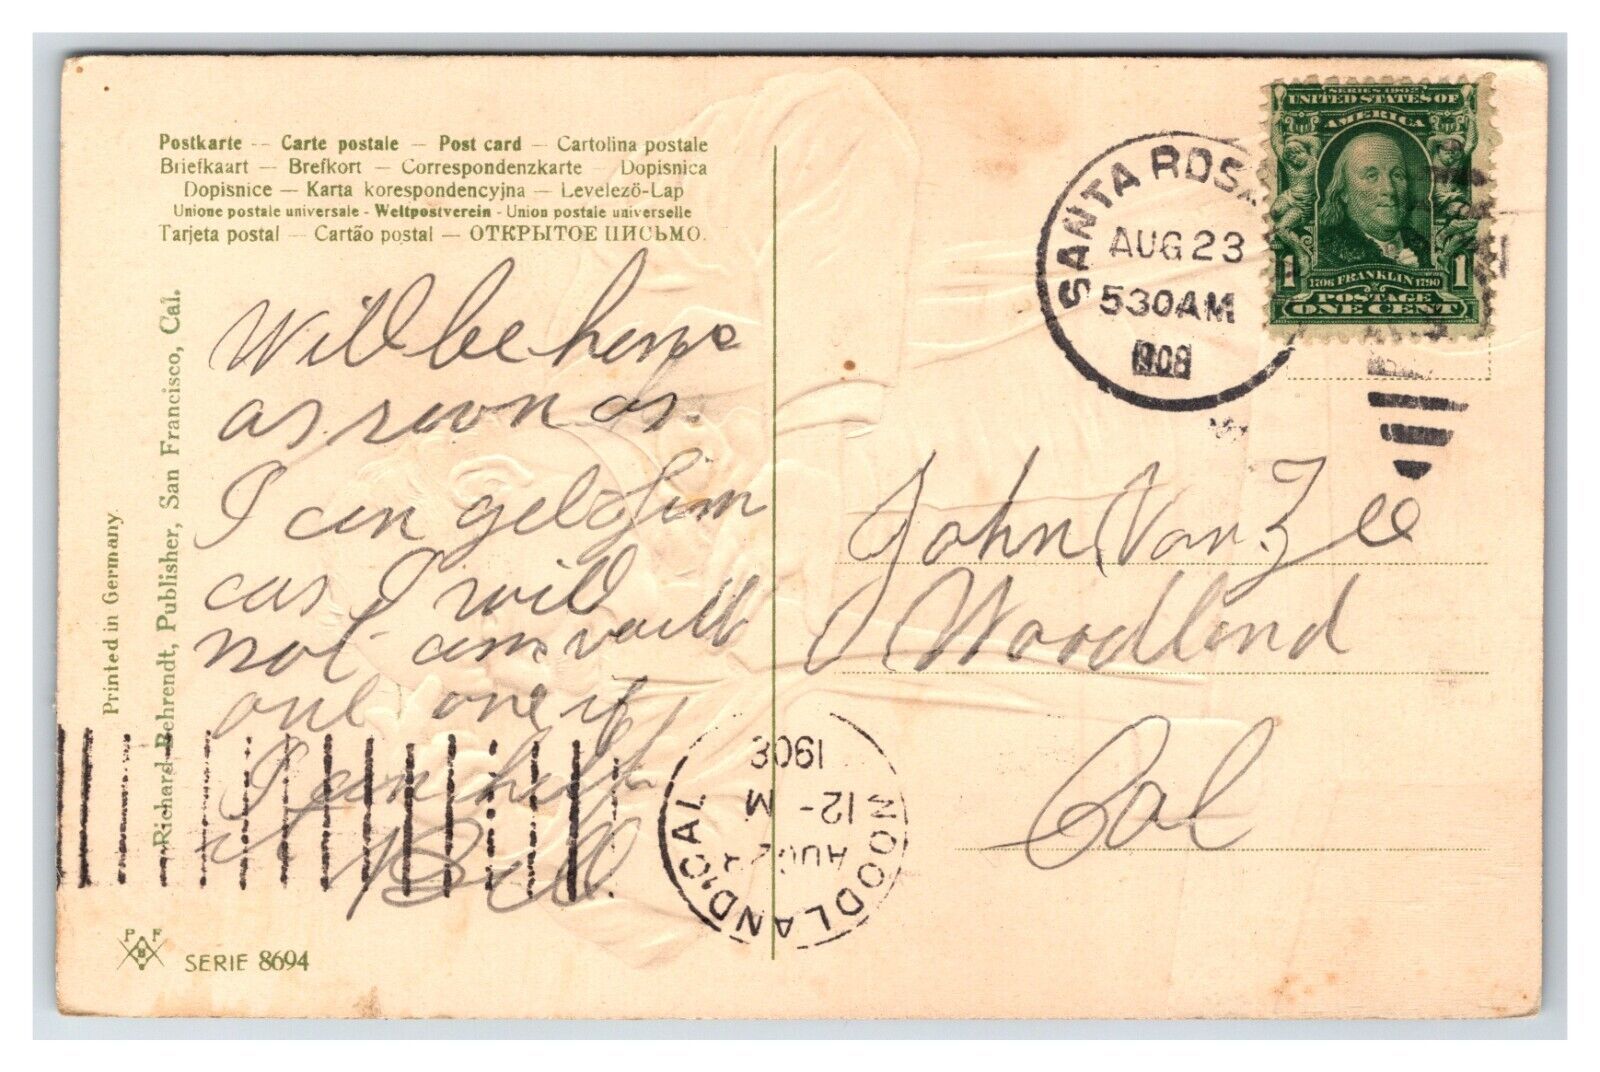 Postkarte - Carte postale - Post card - Cartolina postale
Briefkaart - Brefkort - Correspondenzkarte - Dopisnica
Dopisnice - Karta korespondencyjna - Levelező-Lap
Unione postale universale - Weltpostverein - Union postale universelle
Tarjeta postal - Cartão postal - ОТКРЫТОЕ ПИСЬМО.
Printed in Germany
Richard Behrendt, Publisher, San Francisco, Cal.
Will be home
as soon as
I can get
as I will
not
one if
I can help
it Bill
P F
B
SERIE 8694
SANTA ROSA
AUG 23
530AM
1908
SERIES 1902
UNITED STATES OF
AMERICA
1 1
1706 FRANKLIN 1790
POSTAGE
ONE CENT
John Van Zee
Woodland
Cal
WOODLAND, CAL
AUG
12- M
1908